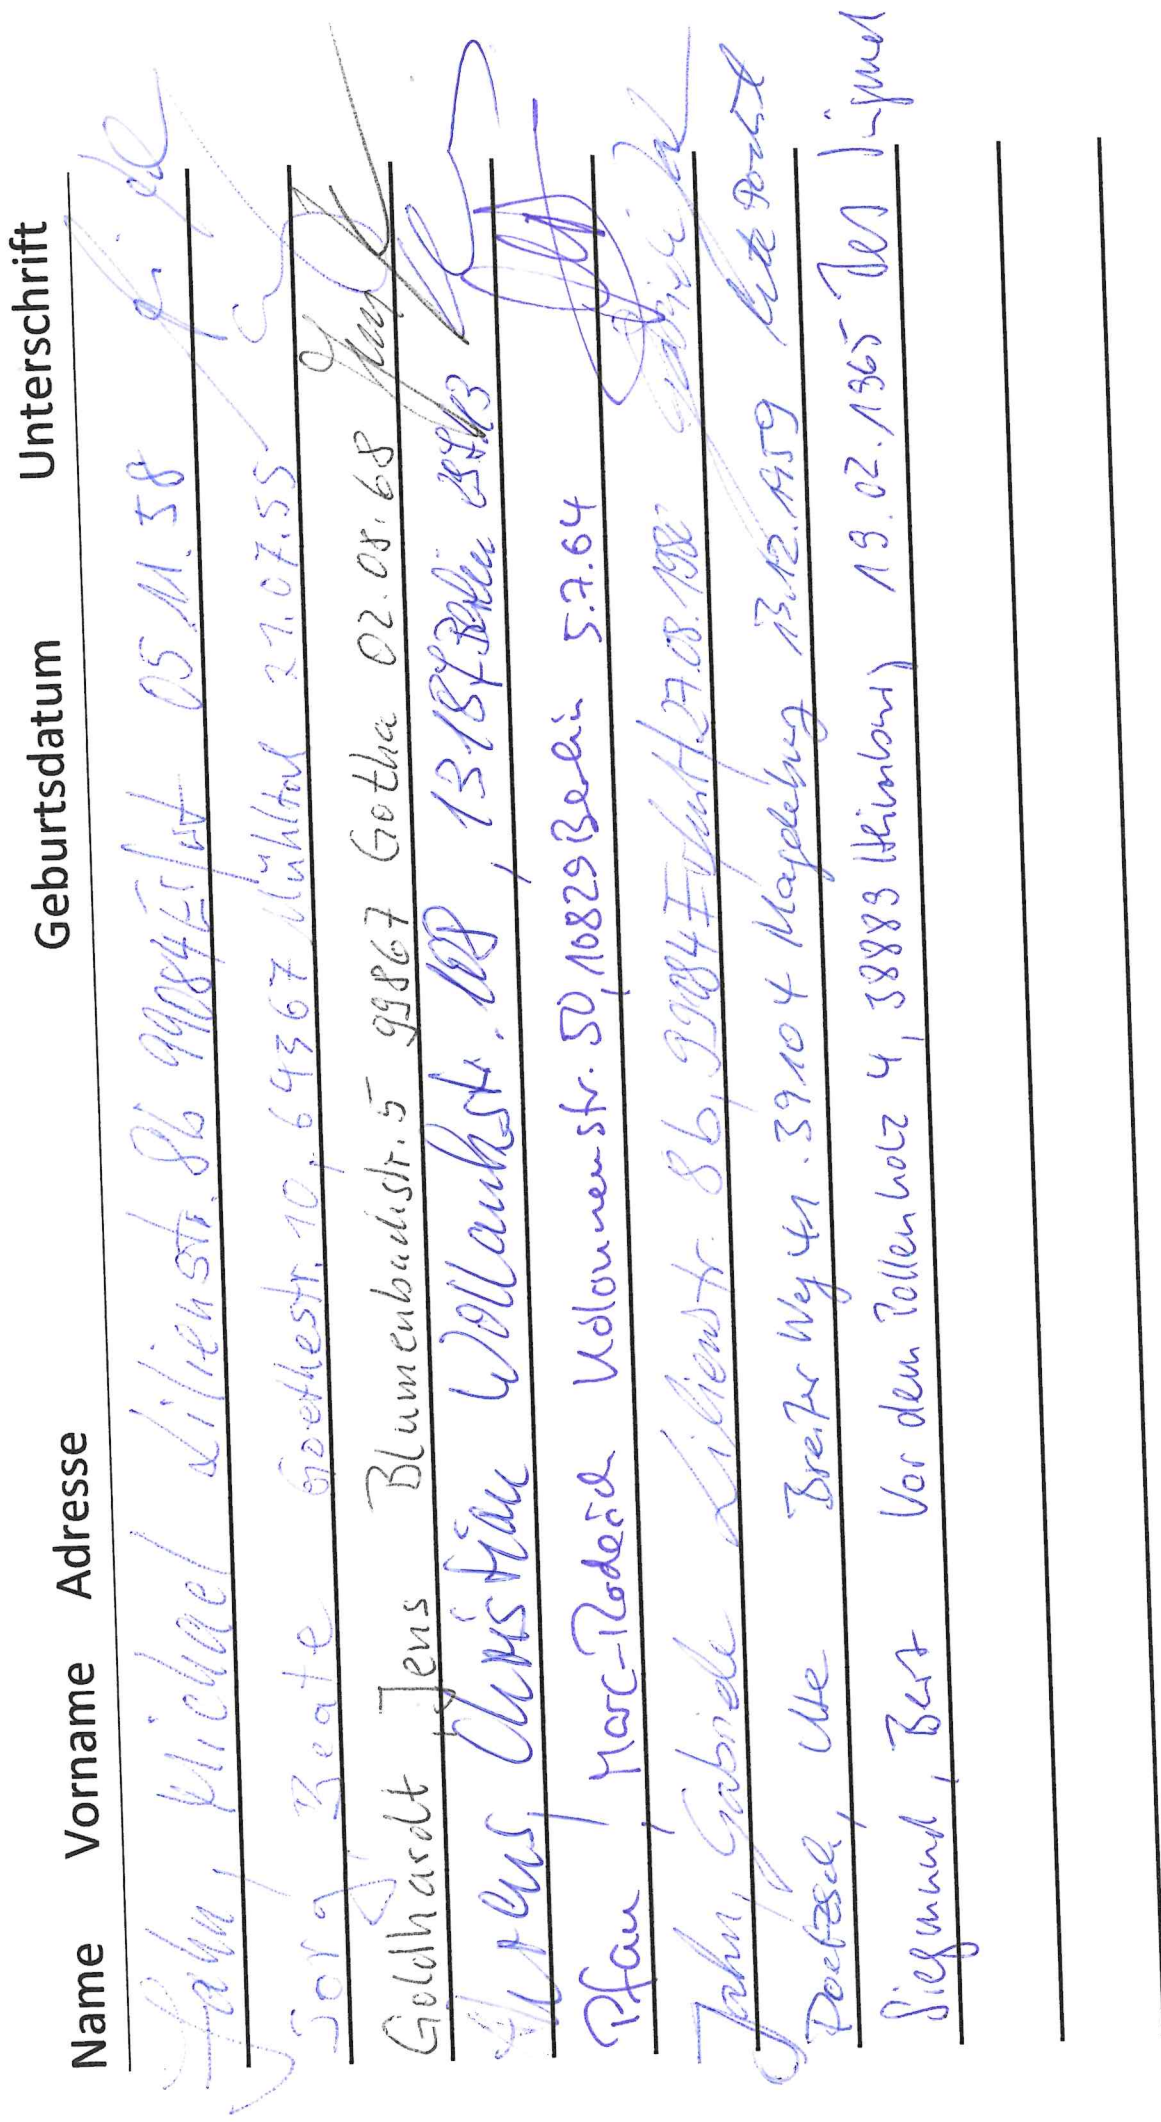 Name Vorname Adresse Geburtsdatum Unterschrift
Jahn, Michael Lilienstr. 8b 99084 Erfurt 05 11.58
Jorg Beate Goethestr. 10, 64367 Mühltal 21.07.55
Goldhardt Jens Blumenbachstr. 5 99867 Gotha 02.08.68
Christian Wollankstr. 108, 13187 Berlin
Pfau, Marc-Roderich Kolonnenstr. 50, 10829 Berlin 5.7.64
Jahn, Gabriele Lilienstr. 8b, 99084 Erfurt 27.08.198
Poetzsch, Ute Breiter Weg 39104 Magdeburg 13.12.1959 Ute Poetzsch
Siegmund, Bert Vor dem Tollenholz 4, 38883 19.02.1965